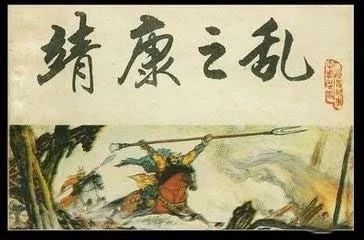 靖康之乱